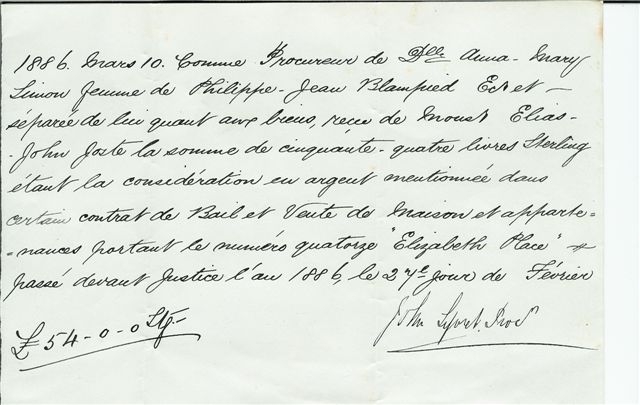 1886. Mars 10. Comme Procureur de Dlle Anna-Mary
Simon femme de Philippe-Jean Blampied Ecr et -
séparée de lui quant aux biens, reçu de Monsr Elias-
-John Joste la somme de cinquante-quatre livres Sterling
étant la considération en argent mentionnée dans
certain contrat de Bail et Vente de Maison et apparte=
=nances portant le numéro quatorze "Elizabeth Place"
passé devant Justice l'an 1886, le 27e jour de Février
£54-0-0 Stg-
John Procr